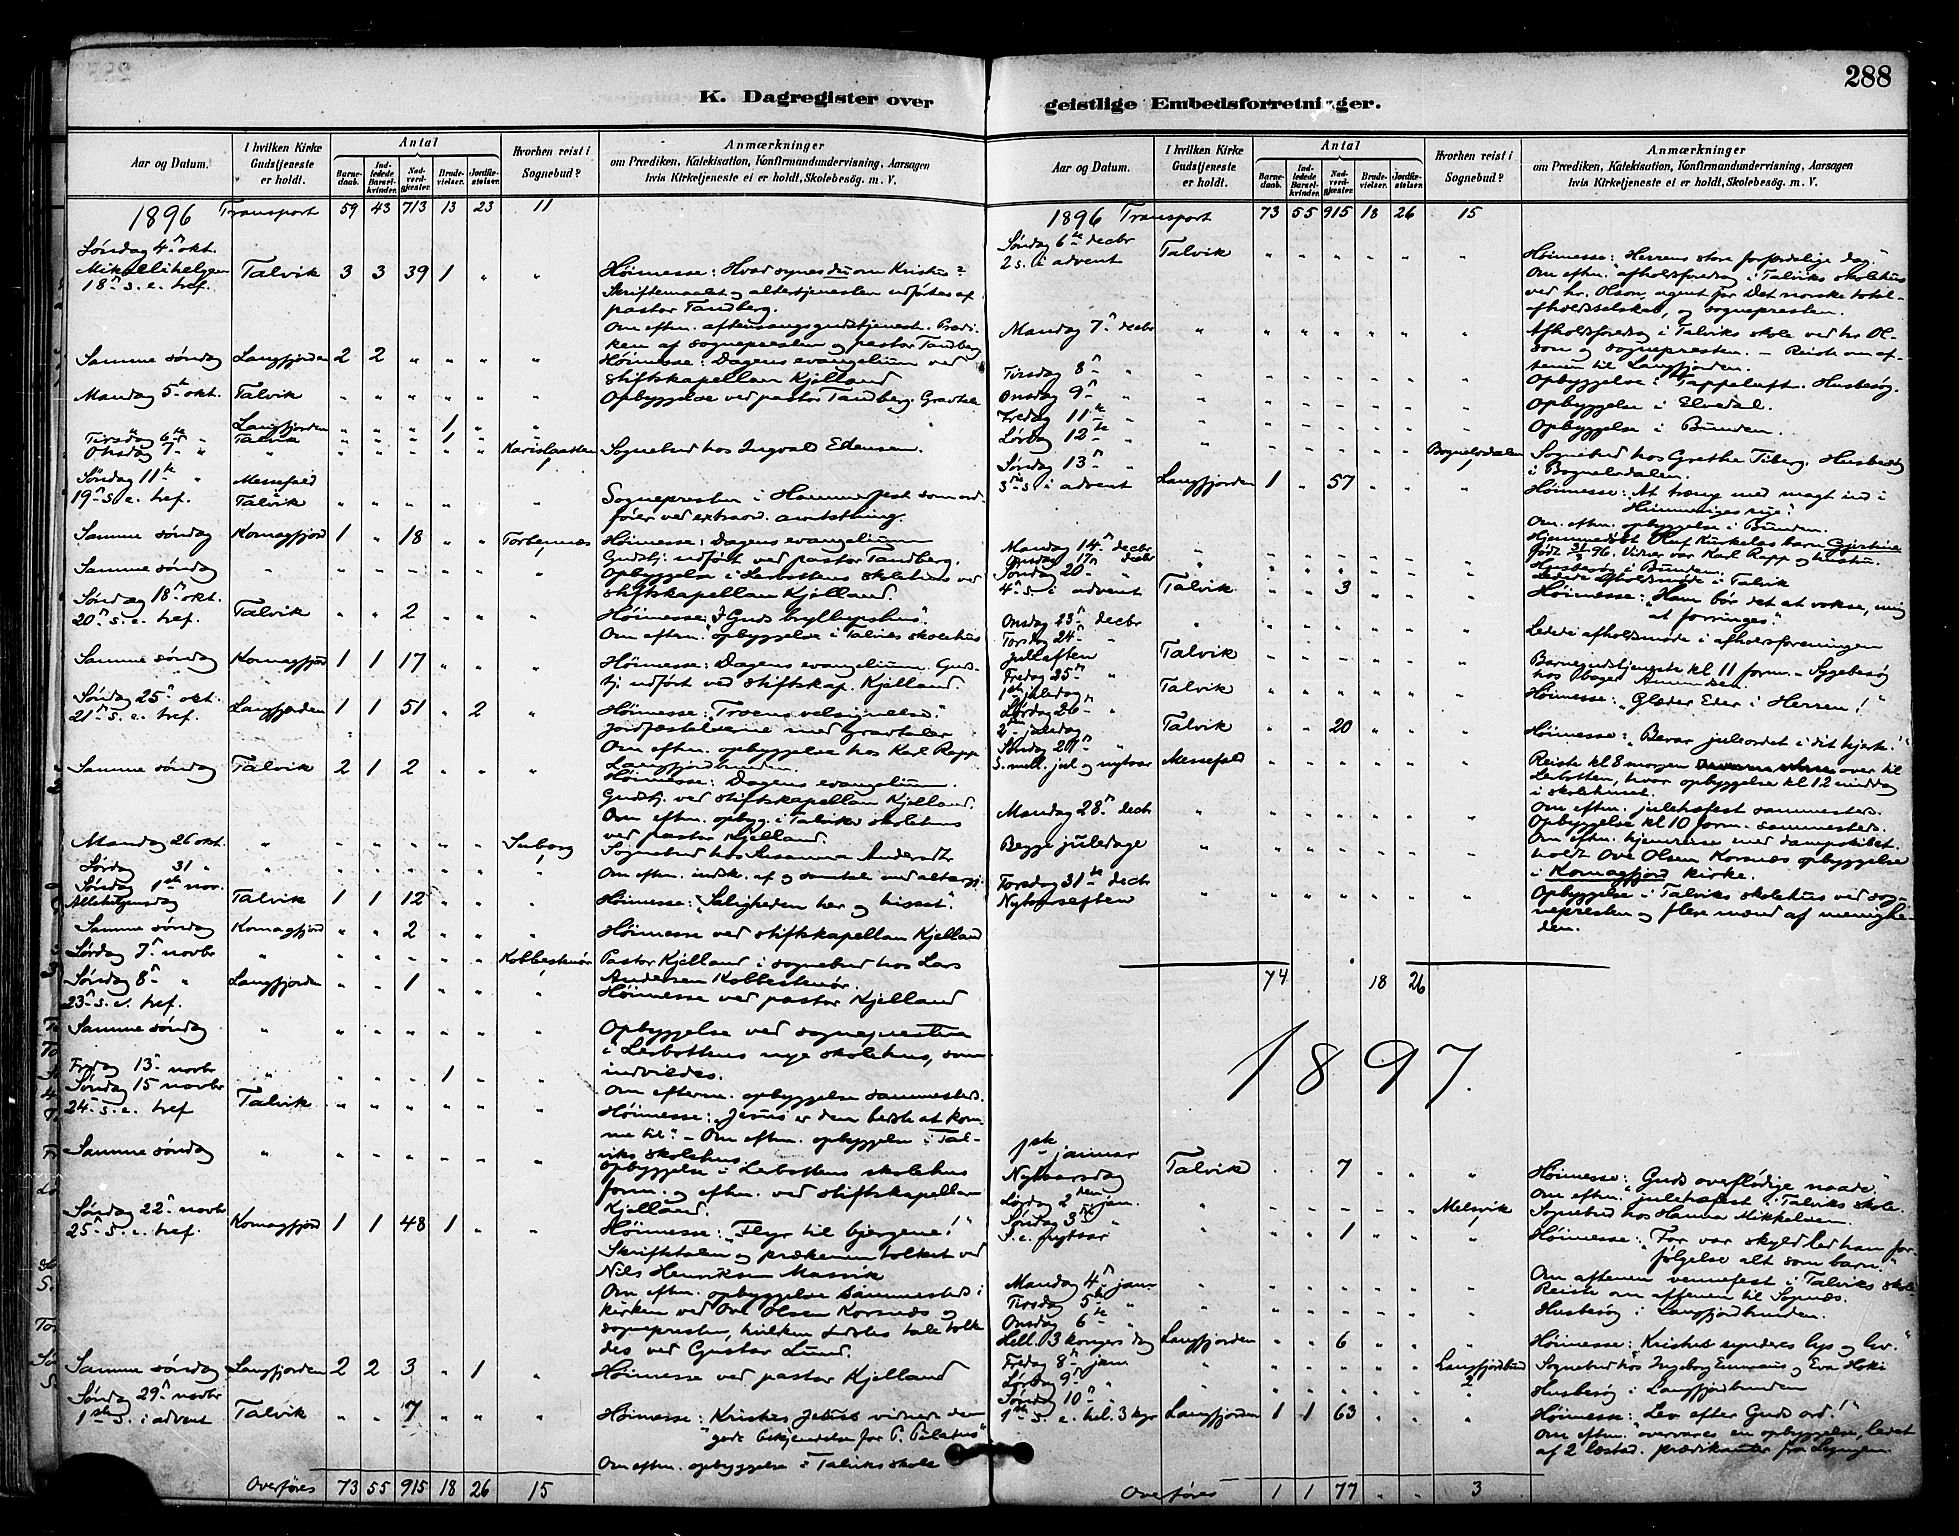 288
K. Dagregister over
geistlige Embedsforretninger.
Aar og Datum.
I hvilken Kirke
Gudstjeneste
er holdt.
Antal
Barne-
daab.
Ind-
ledede
Barsel-
kvinder.
Nad-
verd-
gjæster.
Brude-
vielser.
Jordfæ-
stelser.
Hvorhen reist i
Sognebud?
Anmærkninger
om Prædiken, Katekisation, Konfirmandundervisning, Aarsagen
hvis Kirketjeneste ei er holdt, Skolebesøg. m. V.
1896 Transport 59 43 713 13 23 11
Søndag 4de okt.
Mikaelihelgen Talvik 3 3 39 1 " " Høimesse: Hvad synes du om Kristus?
18de s. e. tref. Skriftemaalet og altertjenesten udførtes af
pastor Tandberg.
Om eftm. aftensangsgudstjeneste. Prædi-
ken af sognepresten og pastor Tandberg
Samme søndag Langfjorden 2 2 " " " " Høimesse: Dagens evangelium ved
stiftskapellan Kjelland
Mandag 5te okt. Talvik " " " " " " Opbyggelse ved pastor Tandberg. Gravtale
Langfjorden " " " 1 "
Tirsdag 6te " Talvik " " " 1 " "
Onsdag 7de " " " " " " " Sognebud hos Ingvald Edensen.
Søndag 11te " Messefald
19de s. e. tref. Talvik " " " " " " Sognepresten i Hammerfest som ord-
fører ved extraord. amtsting.
Samme søndag Komagfjord 1 " 18 " " Torbennæs Høimesse: Dagens evangelium
Gudstj. udført ved pastor Tandberg.
Samme søndag " " " " " " " Opbyggelse i Lerbottens skolehus ved
stiftskapellan Kjelland.
Søndag 18de okt.
20de s. e. tref. Talvik " " 2 " " " Høimesse: "I Guds bryllupshus".
Om eftm. opbyggelse i Talviks skolehus
Samme søndag Komagfjord 1 1 17 " " " Høimesse: Dagens evangelium. Guds-
tj. udført ved stiftskap. Kjelland.
Søndag 25de okt.
21de s. e. tref. Langfjorden 1 1 51 " 2 " Høimesse: "Troens velsignelse."
Jordfæstelserne med gravtaler
Om eftm. opbyggelse hos Karl Rapp
Langfjordbunden.
Samme søndag Talvik 2 1 2 " " " Høimesse: Dagens evangelium.
Gudstj. ved stiftskapellan Kjelland.
Om eftm. opbyg. i Talviks skolehus
ved pastor Kjelland.
Mandag 26 okt. " " " " " " Sognebud hos Susanna
Lørdag 31 " " " " " " " " Om eftm. indsk. af og samtale med
Søndag 1ste nov.
Allehelgensdag Talvik 1 1 12 " " " Høimesse: "Saligheden her og hisset".
Samme søndag Komagfjord " " 2 " " " Høimesse ved stiftskapellan Kjelland
Lørdag 7de novbr " " " " " " Pastor Kjelland i sognebud hos Lars
Andersen
Søndag 8de " Langfjorden " " 1 " " " Høimesse ved pastor Kjelland
23de s. e. tref.
Samme søndag " " " " " " " Opbyggelse ved sognepresten
i Lerbottens nye skolehus, som
indviedes.
Fredag 13de novbr " " " " 1 " "
Om efterm. opbyggelse sammesteds.
Søndag 15 novbr
24de s. e. tref Talvik " " " " " " Høimesse: "Jesus er den bedste at kom-
me til." – Om eftm. opbyggelse i Tal-
viks skolehus.
Samme søndag " " " " " " " Opbyggelse i Lerbottens skolehus
form. og eftm. ved stiftskapellan
Kjelland.
Søndag 22de novbr
25de s. e. tref. Komagfjord 1 1 48 1 " " Høimesse: "Flyr til bjergene!"
Skriftetalen og prækenen tolket ved
Nils Henriksen Masvik
Om eftm. opbyggelse sammesteds i
kirken ved Ove Olsen Korsnæs og
sognepresten, hvilken sidstes tale tolke-
des ved Gustav Lund.
Samme søndag Langfjorden 2 2 3 " 1 " Høimesse ved pastor Kjelland
Søndag 29de novbr
1ste s. i advent Talvik " " 7 " " " Høimesse: "Kristus Jesus vidnede den
gode bekjendelse for P. Pilatus"
Om eftm. opbyggelse i Talviks skole
Overføres 73 55 915 18 26 15
Aar og Datum.
I hvilken Kirke
Gudstjeneste
er holdt.
Antal
Barne-
daab.
Ind-
ledede
Barsel-
kvinder.
Nad-
verd-
gjæster.
Brude-
vielser.
Jordfæ-
stelser.
Hvorhen reist i
Sognebud?
Anmærkninger
om Prædiken, Katekisation, Konfirmandundervisning, Aarsagen
hvis Kirketjeneste ei er holdt, Skolebesøg. m. V.
1896 Transport 73 55 915 18 26 15
Søndag 6te decbr
2 s. i advent Talvik " " " " " " Høimesse: "Herrens store forfærdelige dag."
Om eftm. afholdsforedrag i Talviks skolehus
ved hr. Olson, agent for Det norske total-
afholdsselskab, og sognepresten.
Mandag 7de decbr " " " " " " " Afholdsforedrag i Talviks skole ved hr Ol-
son og sognepresten. – Reiste om af-
tenen til Langfjorden.
Tirsdag 8de " " " " " " " " Opbyggelse i Tappeluft. Husbesøg.
Onsdag 9de " " " " " " " " Opbyggelse i Elvedal.
Fredag 11te " " " " " " " " Opbyggelse i Bunden.
Lørdag 12te " " " " " " " Bognelvdalen Sognebud hos Grethe Tiberg. Husbesøg
i Bognelvdalen.
Søndag 13de "
3die s. i advent Langfjorden 1 " 57 " " " Høimesse: "At trænge med magt ind i
Himmeriges rige."
Om eftm. opbyggelse i Bunden.
Mandag 14de decbr " " " " " " Hjemmedøbt Oluf Kurkelas barn
født 96. Vidner var Karl Rapp og hustru.
Onsdag decbr " " " " " " " Husbesøg i Bunden.
Ledede afholdsmøde i Talvik
Søndag 20de "
4de s. i advent Talvik " " 3 " " " Høimesse: "Ham bør det at vokse, mig
at forringes."
Onsdag 23de decbr " " " " " " " Ledede afholdsmøde i afholdsforeningen
Torsdag 24de "
Juleaften Talvik " " " " " " Barnegudstjeneste kl 11 form. – Sygebesøg
hos
Fredag 25de "
1ste juledag Talvik " " " " " " Høimesse: "Glæder Eder i Herren!"
Lørdag 26de "
2den juledag Talvik " " 20 " " " Høimesse: "Bevar juleordet i dit hjerte!"
Søndag 27de "
S. mell. jul og nytaar Messefald Reiste kl 8 morgen over til
Lerbotten, hvor opbyggelse kl 12 middag
i skolehuset.
Om eftm. juletræfest sammesteds.
Mandag 28de decbr " " " " " " " Opbyggelse kl 10 form. sammesteds.
Om eftm. hjemreise med dampskibet.
Begge juledage " " " " " " " holdt Ove Olsen Korsnæs opbyggelse
i Komagfjord kirke.
Torsdag 31te decbr
Nytaarsaften " " " " " " " Opbyggelse i Talviks skolehus ved sog-
nepresten og flere mænd af menighe-
den.
74 18 26
1897.
1ste januar
Nytaarsdag Talvik " " 7 " " " Høimesse: "Guds overflødige naade"
Om eftm. juletræfest i Talviks skole.
Lørdag 2den jan. " " " " " " Melsvik Sognebud hos Hanna Mikkelsen.
1
Søndag 3die "
S. e. nytaar " " 1 " " " Høimesse: "For vor skyld led han for-
følgelse alt som barn."
Om aftenen vennefest i Talviks skole
Mandag 4de jan. " " " " " " Reiste om aftenen til Sopnæs.
Tirsdag 5te " " " " " " " Husbesøg i Langfjordbunden.
Onsdag 6te "
Hell. 3 kongers dag Langfjorden " " 6 " " " Høimesse: "Kristus synderes lys og liv."
Fredag 8de jan. " " " " " " Langfjordbund Sognebud hos Ingeborg og Eva
2
Lørdag 9de " " " " " " " " Husbesøg i Langfjordbunden
Søndag 10de "
1ste s. e. hel. 3 kgr Langfjorden 1 1 63 " " " Høimesse: "Lev efter Guds ord!"
Om eftm. overværes en opbyggelse, ledet
af 2 læstad. prædikanter fra Lyngen
Overføres 1 1 77 " " 3